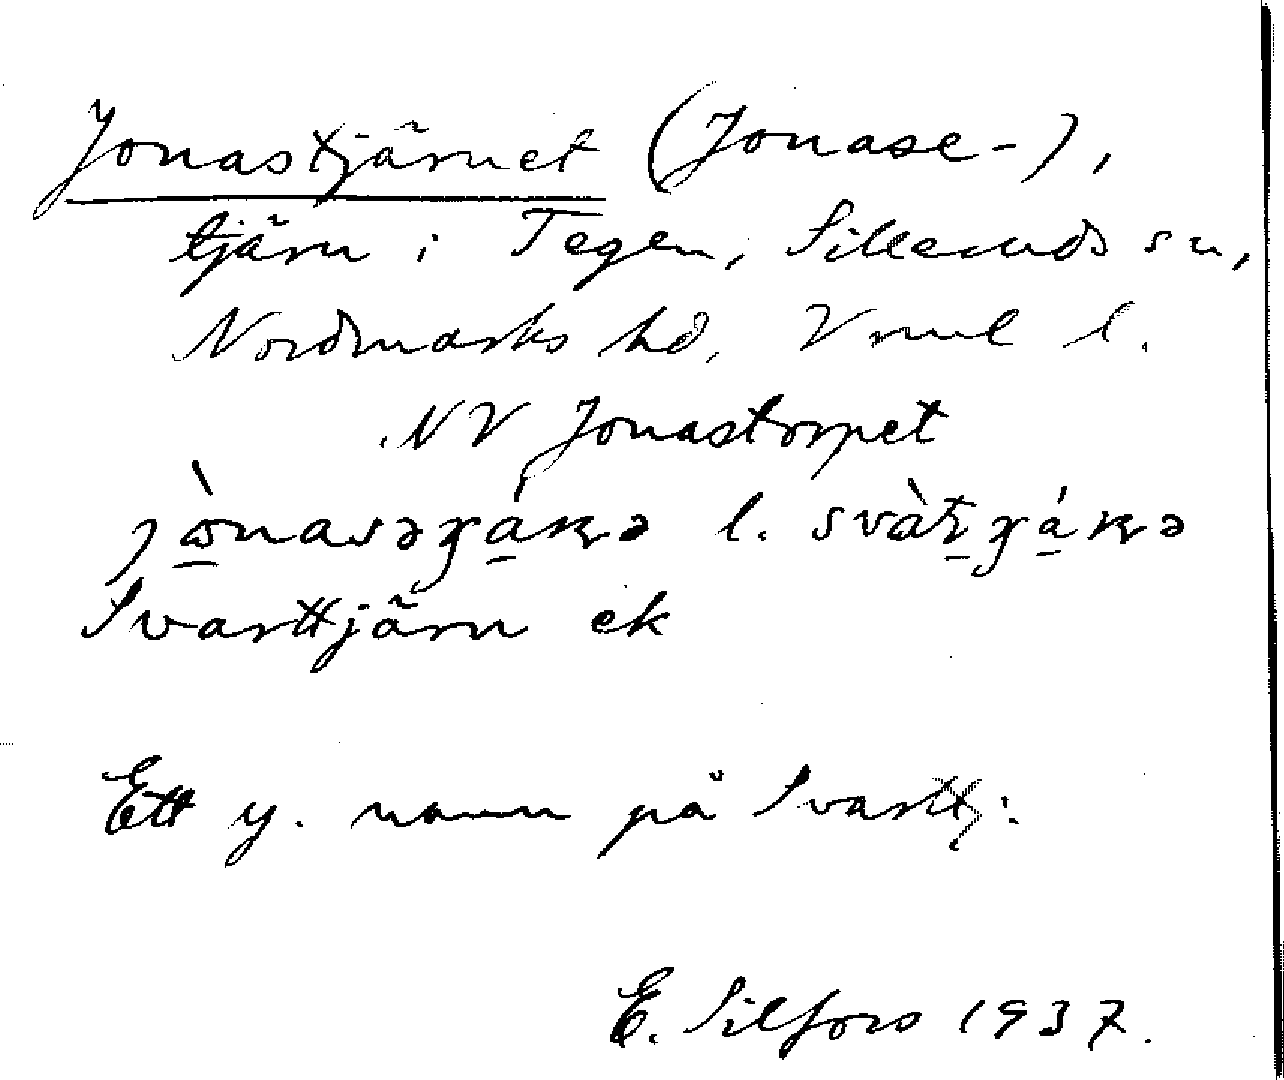 Jonastjärnet (Jonase-),
tjärn i Tegen, Silleruds sn,
Nordmarks hd, Vrml l.
NV Jonastorpet
Svarttjärn ek
Ett y. namn på Svarttj:
E. Silfors 1937.